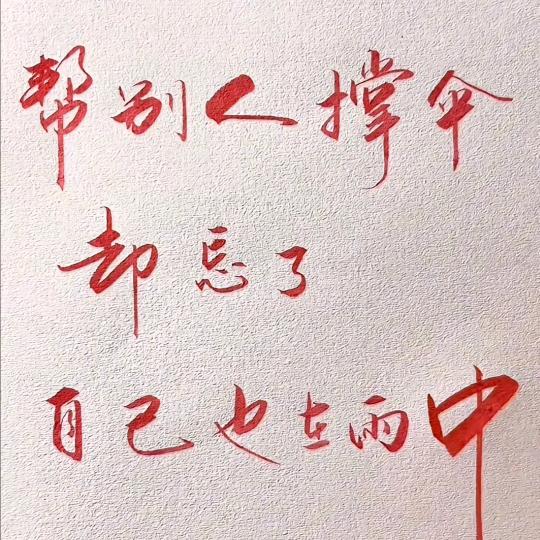 帮别人撑伞
却忘了
自己也在雨中